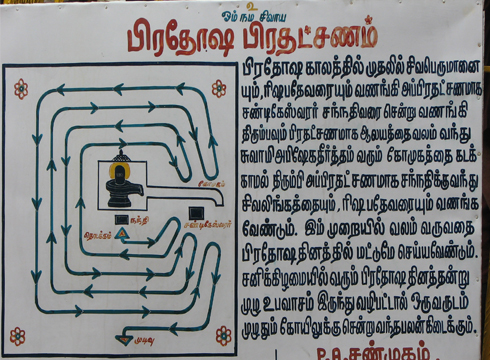 உ
ஓம் நம சிவாய
பிரதோஷ பிரதட்சணம்
பிரதோஷ காலத்தில் முதலில் சிவபெருமானை
யும், ரிஷபதேவரையும் வணங்கி அப்பிரதட்சணமாக
சண்டிகேஸ்வரர் சந்நதிவரை சென்று வணங்கி
திரும்பவும் பிரதட்சணமாக ஆலயத்தை வலம் வந்து
சுவாமி அபிஷேகதீர்த்தம் வரும் கோமுகத்தை கடக்
காமல் திரும்பி அப்பிரதட்சணமாக சந்நதிக்குவந்து
சிவலிங்கத்தையும், ரிஷபதேவரையும் வணங்க
வேண்டும். இம் முறையில் வலம் வருவதை
பிரதோஷதினத்தில் மட்டுமே செய்யவேண்டும்.
சனிக்கிழமையில் வரும் பிரதோஷ தினத்தன்று
முழு உபவாசம் இருந்து வழிபட்டால் ஒருவருடம்
முழுதும் கோயிலுக்கு சென்றுவந்தபலன்கிடைக்கும்.
சண்முகம்
கோமுகம்
நந்தி
சண்டிகேஸ்வரர்
தொடக்கம்
முடிவு